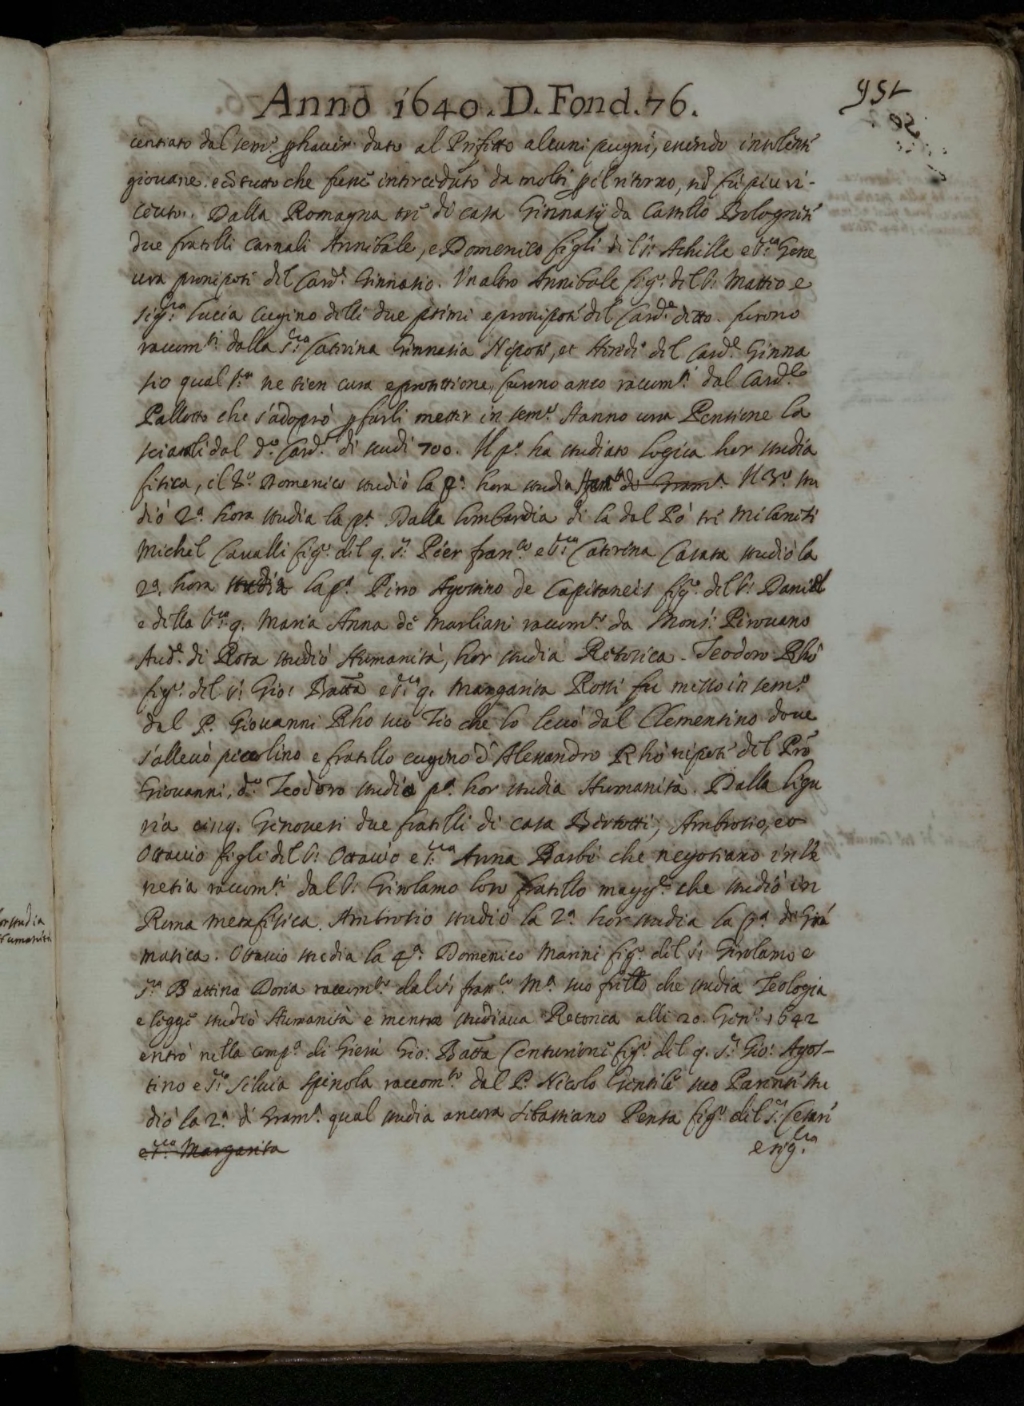 Anno 1640. D. Fond. 76.
951
centiato dal sem.º p hauer dato al Prefetto alcuni pugni, essendo insolente
giouane, e cò tutto che fusse interceduto da molti p il ritorno, nò fù più ri-
ceuuto. Dalla Romagna tre di casa Ginnasij da Castello Bolognese
due fratelli carnali Annibale, e Domenico figli del S.r Achille e S.ra Gene
uera pronipoti del Card.e Ginnasio. Vn altro Annibale fig.º del S.r Matteo e
Sig.ra Lucia Cugino delli due primi e pronipote del Card.e ditto. furono
raccom.ti dalla S.ra Caterina Ginnasia Nipote, et Herede del Card.e Ginna
sio qual S.ra ne tien cura e protettione, furono anco racom.ti dal Card.le
Pallotto che s'adoprò p farli metter in sem.º Hanno una Pensione la
sciatali dal d.º Card.e di scudi 700. Il p.º ha studiato Logica hor studia
fisica, il 2.º Domenico studiò la p.ª hora studia de Gram.ª Il 3.º stu
diò 2.ª hora studia la p.ª Dalla Lombardia di la dal Pò tre Milanesi
Michel Cavalli fig.º del q. S.r Pier fran.co e S.ra Caterina Casata studiò la
2.ª hora studia la p.ª Pirro Agostino de Capitaneis fig.º del S.r Daniel
e della S.ra q. Maria Anna de Marliani raccom.to da Mons.r Pirouano
Aud.e di Rota studiò Humanità, hor studia Retorica. Teodoro Rhò
fig.º del S.r Gio: Batta e S.ra q. Margarita Rossi fu messo in sem.º
dal P. Giouanni Rho suo Zio che lo leuò dal Clementino doue
s'alleuò piccolino e fratello cugino d'Alessandro Rhò nipote del P.re
Giouanni, d.º Teodoro studiò p.ª hor studia Humanità. Dalla Ligu
ria cinq. Genouesi due fratelli di casa Bertotti, Ambrosio, et
Ottauio figli del S.r Ottauio e S.ra Anna Barbi che negotiano in Ve
netia raccom.ti dal S.r Girolamo loro fratello magg.re che studiò in
Roma metafisica. Ambrosio studiò la 2.ª hor studia la p.ª de Gra
matica. Ottauio studia la 4.ª Domenico Marini fig.º del S.r Girolamo e
S.ra Battina Doria raccom.to dal S.r fran.co M.ª suo frèllo che studia Teologia
e legge studiò Humanità e mentre studiaua Retorica alli 20. Gen.º 1642
entrò nella comp.ª di Giesù Gio: Batta Centurione fig.º del q. S.r Gio: Agos-
tino e S.ra Siluia Spinola raccom.to dal P. Nicolò Gentile suo Parente stu
diò la 2.ª d Gram.ª qual studia ancora Sibastiano Pensa fig.º del S.r Cesare
e S.ra Margarita
e sig.ra
hor studia
Humanità